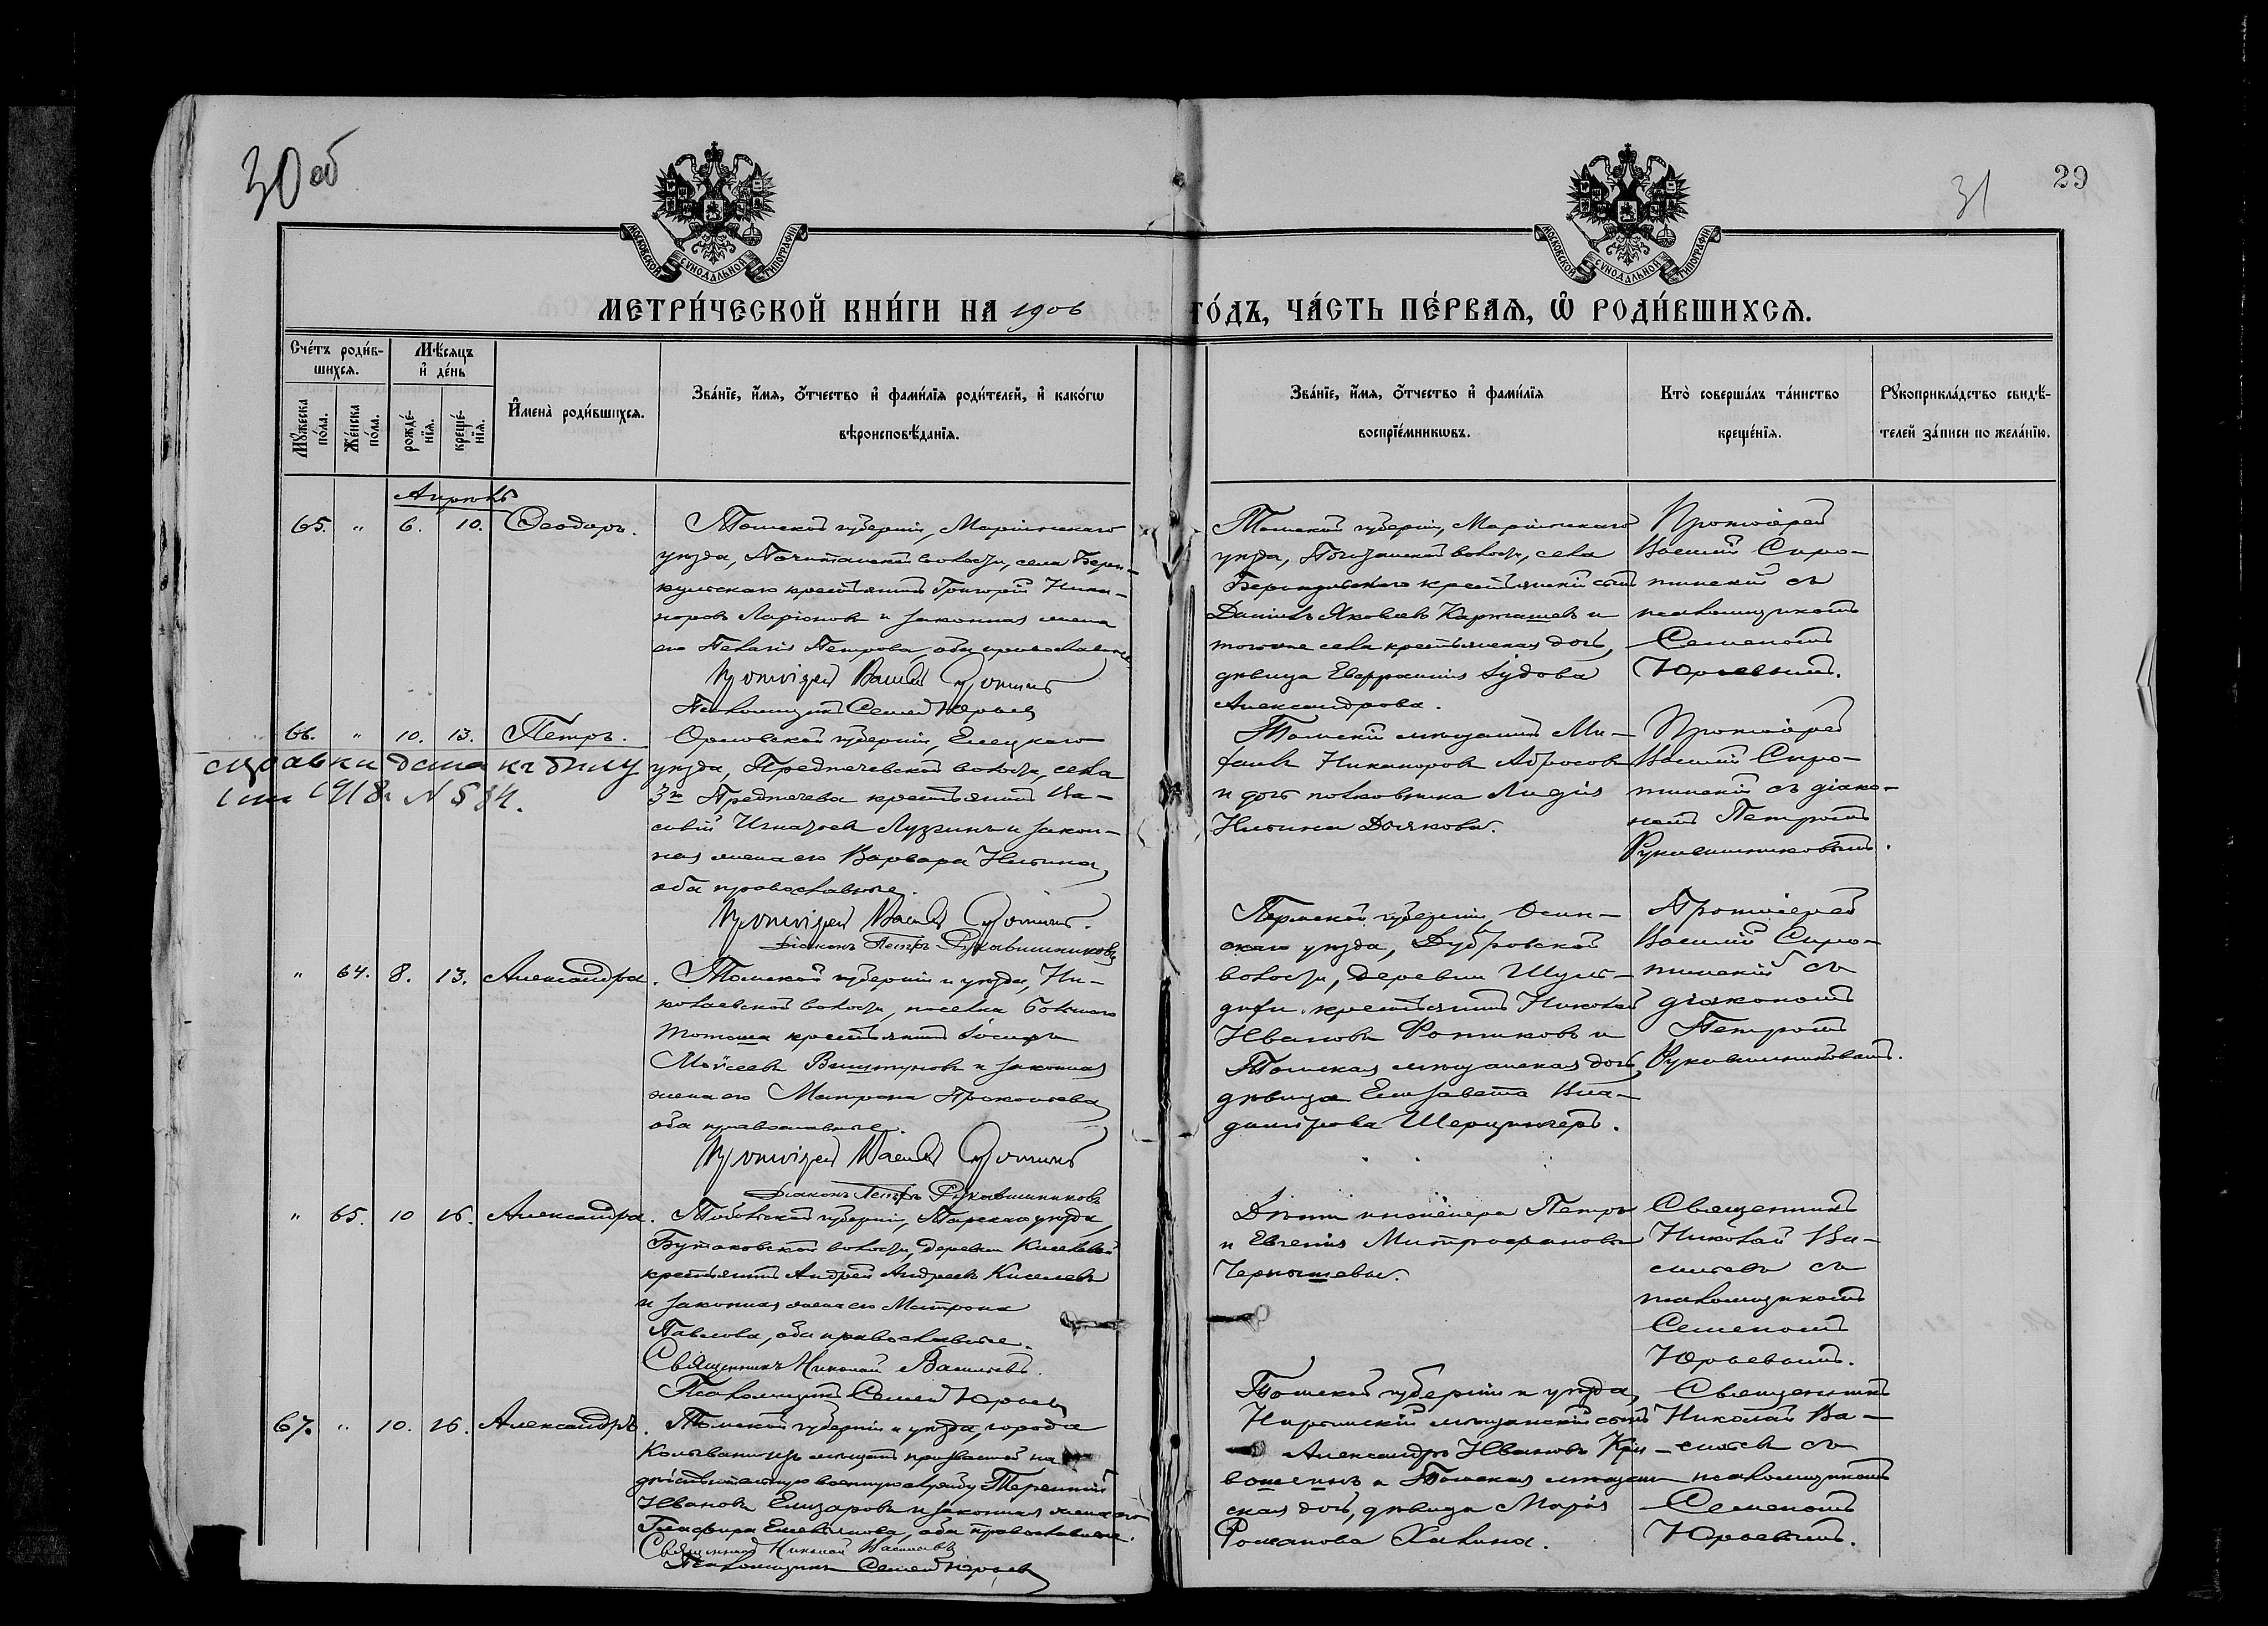 30 об
31
29
МОСКОВСКОЙ СѴНОДАЛЬНОЙ ТИПОГРАФІИ
МОСКОВСКОЙ СѴНОДАЛЬНОЙ ТИПОГРАФІИ
МЕТРИ́ЧЕСКОЙ КНИ́ГИ НА 1906 ГО́ДЪ, ЧА́СТЬ ПЕ́РВАЯ, Ѡ РОДИ́ВШИХСЯ.
Сче́тъ роди́в-
шихся.
Мѣ́сяцъ
и҆ де́нь
Мꙋ́жеска
по́ла.
Же́нска
по́ла.
рожде́-
нїя.
креще́-
нїя.
И҆мена̀ роди́вшихся.
Зва́нїе, и҆́мя, ѻ҆́тчество и҆ фами́лїя роди́телей, и҆ како́гѡ
вѣроисповѣ́данїя.
Зва́нїе, и҆́мя, ѻ҆́тчество и҆ фами́лїя
воспрїе́мникѡвъ.
Кто̀ соверша́лъ та́инство
креще́нїя.
Рꙋкоприкла́дство свидѣ́-
телей за́писи по жела́нїю.
Апрѣль
65. " 6. 10. Ѳеодоръ.
Томской губерніи, Маріинскаго
уѣзда, Почитанской волости, села Бери-
кульскаго крестьянинъ Григорій Ника-
норовъ Ларіоновъ и законная жена
его Пелагія Петрова, оба православные
Протоіерей Василій Сиротинскій
Псаломщикъ Семенъ Юрьевъ
Томской губерніи, Маріинскаго
уѣзда, Почитанской волости, села
Берикульскаго крестьянскій сынъ
Даніилъ Яковлевъ Карташевъ и
того же села крестьянская дочь,
дѣвица Евфрашія Іудова
Александрова.
Протоіерей
Василій Сиро-
тинскій съ
псаломщикомъ
Семеномъ
Юрьевымъ.
66. " 10. 13. Петръ.
справка дана къ билу
1918 г № 584.
Орловской губерніи, Елецкаго
уѣзда, Предтечевской волости, села
3го Предтечева крестьянинъ Ва-
силій Игнатьевъ Лузгинъ и закон-
ная жена его Варвара Ильина,
оба православные.
Протоіерей Василій Сиротинскій.
Діаконъ Петръ Рукавишниковъ
Томскій мѣщанинъ Ми-
хаилъ Никаноровъ Абросовъ
и дочь полковника Лидія
Ильина Дьякова.
Протоіерей
Василій Сиро-
тинскій съ діако-
номъ Петромъ
Рукавишниковымъ.
" 64. 8. 13. Александра.
Томской губерніи и уѣзда, Ни-
колаевской волости, поселка Большого
Тотоша крестьянинъ Іосифъ
Моисеевъ Виштуновъ и законная
жена его Матрона Прокопьева,
оба православные.
Протоіерей Василій Сиротинскій
Діаконъ Петръ Рукавишниковъ
Пермской губерніи, Осин-
скаго уѣзда, Дубровской
волости, деревни Шуль-
дихи крестьянинъ Николай
Ивановъ Фотиковъ и
Томская мѣщанская дочь,
дѣвица Елизавета Вла-
димірова Шерцингеръ.
Протоіерей
Василій Сиро-
тинскій съ
діакономъ
Петромъ
Рукавишниковымъ.
" 65. 10 16. Александра.
Тобольской губерніи, Тарскаго уѣзда,
Бутаковской волости, деревни Киселевой
крестьянинъ Андрей Андреевъ Киселевъ
и законная жена его Матрона
Павлова, оба православные.
Священникъ Николай Васильевъ.
Псаломщикъ Семенъ Юрьевъ
Дѣти инженера Петръ
и Евгенія Митрофановы
Чернышевы.
Священникъ
Николай Ва-
сильевъ съ
псаломщикомъ
Семеномъ
Юрьевымъ.
67. " 10. 16. Александръ.
Томской губерніи и уѣзда, города
Колывани изъ мѣщанъ призванный на
дѣйствительную военную службу Терентій
Ивановъ Елизаровъ и законная жена его
Глафира Емельянова, оба православные.
Священникъ Николай Васильевъ
Псаломщикъ Семенъ Юрьевъ
Томской губерніи и уѣзда,
Нарымскій мѣщанскій сынъ
Александръ Ивановъ Кри-
вошеинъ и Томская мѣщан-
ская дочь, дѣвица Марія
Романова Халина.
Священникъ
Николай Ва-
сильевъ съ
псаломщикомъ
Семеномъ
Юрьевымъ.